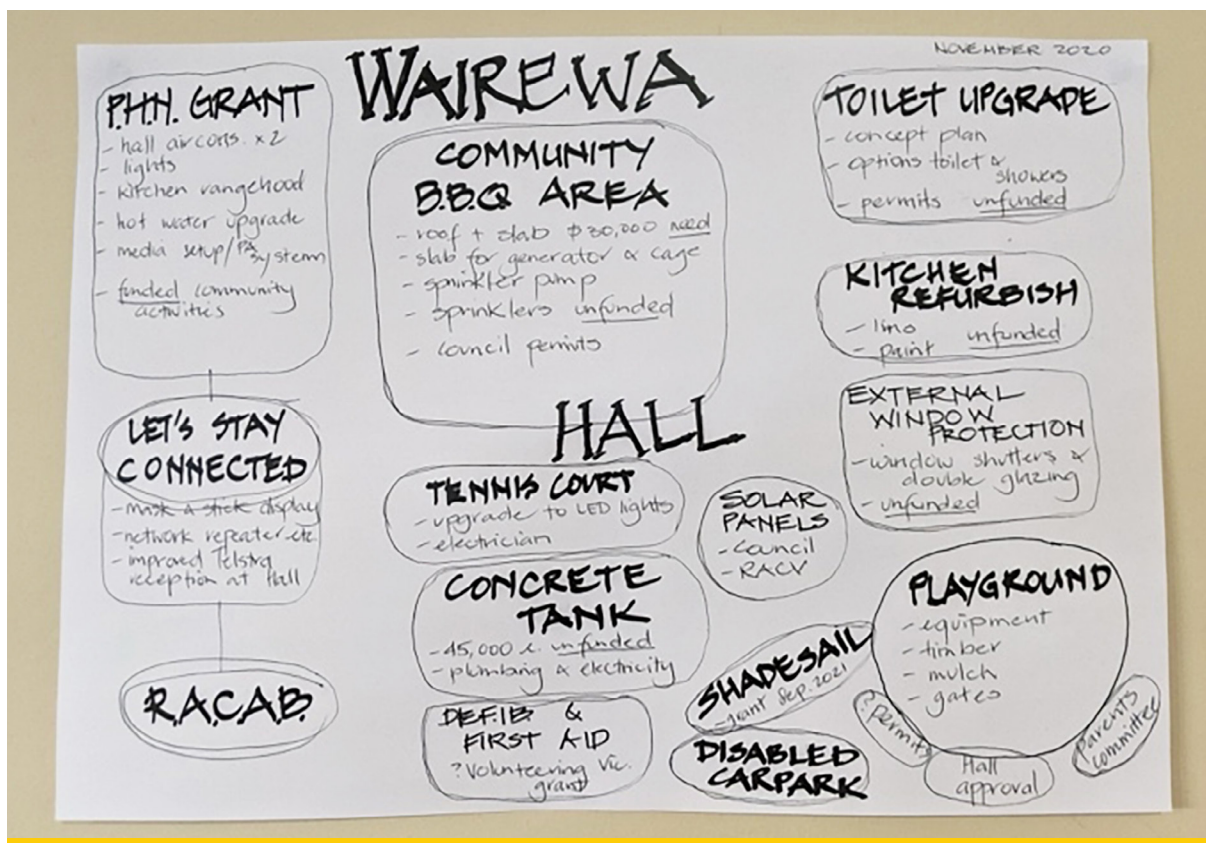 NOVEMBER 2020
WAIREWA
HALL
P.H.N. GRANT
- hall aircons. x2
- lights
- kitchen rangehood
- hot water upgrade
- media setup/PA system
- funded community
activities
LET'S STAY
CONNECTED
- mask a stick display
- network repeater etc.
- improved Telstra
reception at Hall
R.A.C.A.B.
COMMUNITY
B.B.Q AREA
- roof + slab $30,000 need
- slab for generator & cage
- sprinkler pump
- sprinklers unfunded
- council permits
TENNIS COURT
- upgrade to LED lights
- electrician
CONCRETE
TANK
- 45,000 L. unfunded
- plumbing & electricity
DEFIB &
FIRST AID
? Volunteering Vic.
grant
SOLAR
PANELS
- Council
- RACV
SHADESAIL
- grant Sep. 2021
DISABLED
CARPARK
TOILET UPGRADE
- concept plan
- options toilet &
showers
- permits unfunded
KITCHEN
REFURBISH
- lino unfunded
- paint
EXTERNAL
WINDOW
PROTECTION
- window shutters &
double glazing
- unfunded
PLAYGROUND
- equipment
- timber
- mulch
- gates
? permits
Hall
approval
Parents
committee